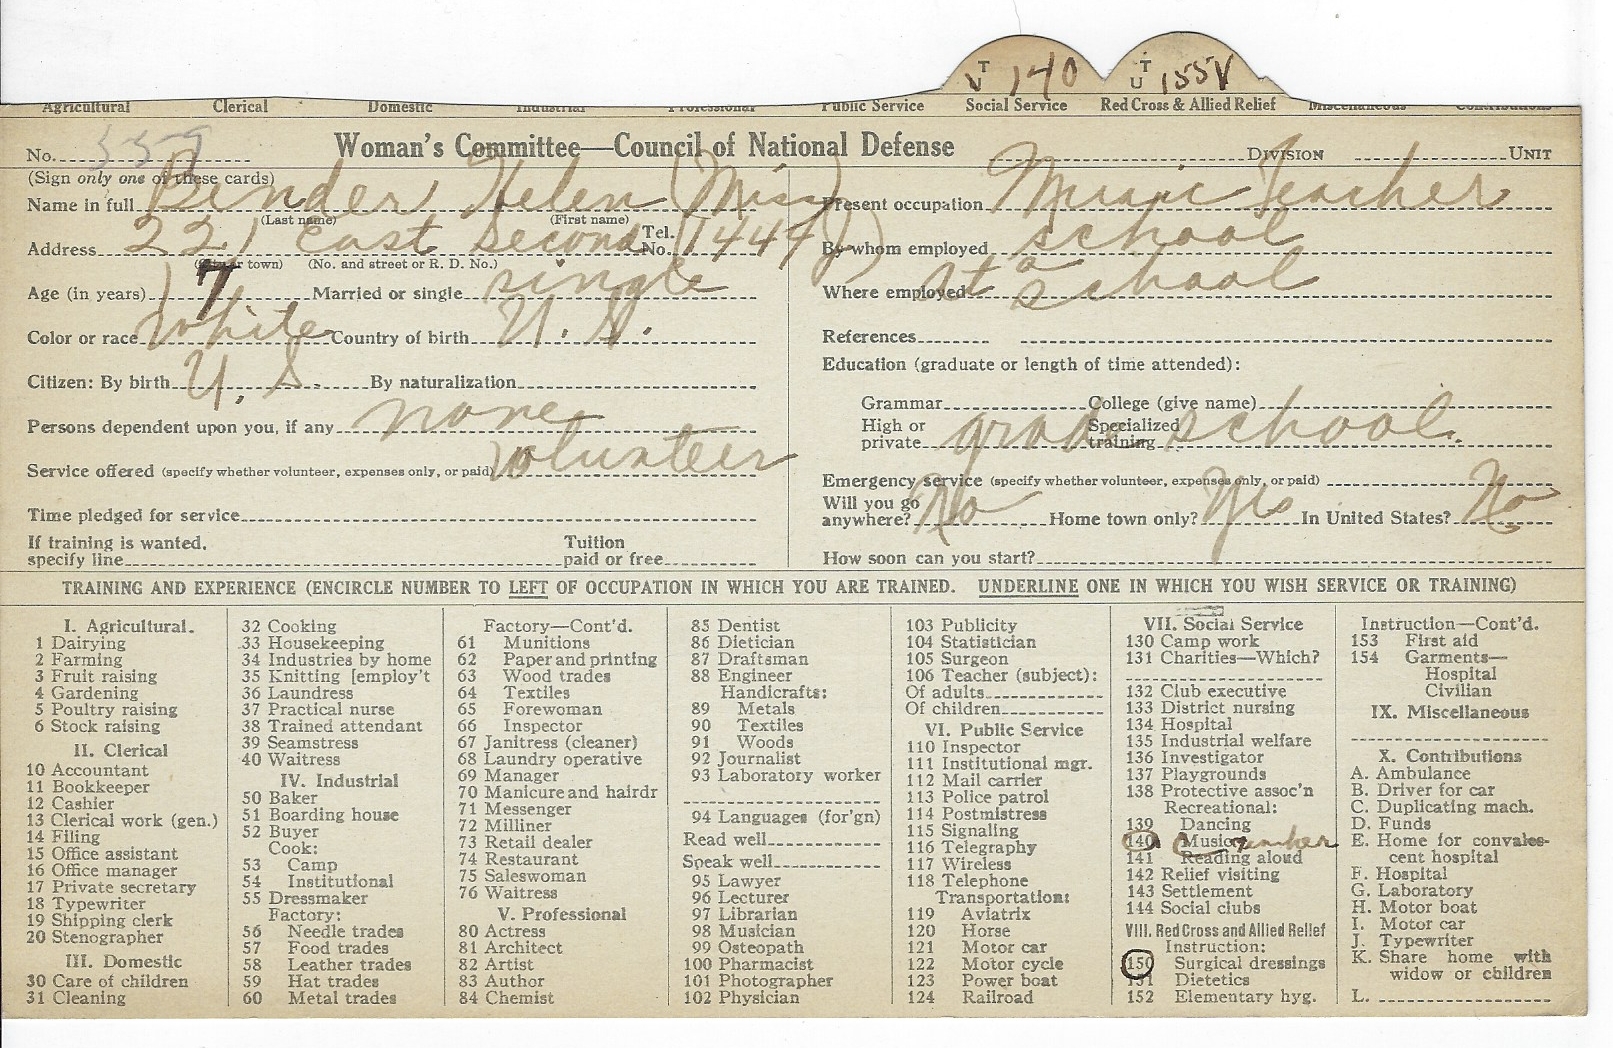 T U 140 T U 155
Agricultural Clerical Domestic Industrial Professional Public Service Social Service Red Cross & Allied Relief Miscellaneous Contributions
Woman's Committee—Council of National Defense
No. 559 DIVISION UNIT
(Sign only one of these cards)
Name in full Binder Helen (Miss)
(Last name) (First name)
Address 221 East Second Tel. No. (1444J)
(City or town) (No. and street or R. D. No.)
Age (in years) 17 Married or single single
Color or race White Country of birth U. S.
Citizen: By birth U. S. By naturalization
Persons dependent upon you, if any none
Service offered (specify whether volunteer, expenses only, or paid) volunteer
Time pledged for service
If training is wanted, specify line Tuition paid or free
Present occupation Music Teacher
By whom employed school
Where employed at a school
References
Education (graduate or length of time attended):
Grammar College (give name)
High or private Specialized training grade school.
Emergency service (specify whether volunteer, expenses only, or paid)
Will you go anywhere? No Home town only? Yes In United States? No
How soon can you start?
TRAINING AND EXPERIENCE (ENCIRCLE NUMBER TO LEFT OF OCCUPATION IN WHICH YOU ARE TRAINED. UNDERLINE ONE IN WHICH YOU WISH SERVICE OR TRAINING)
I. Agricultural.
1 Dairying
2 Farming
3 Fruit raising
4 Gardening
5 Poultry raising
6 Stock raising
II. Clerical
10 Accountant
11 Bookkeeper
12 Cashier
13 Clerical work (gen.)
14 Filing
15 Office assistant
16 Office manager
17 Private secretary
18 Typewriter
19 Shipping clerk
20 Stenographer
III. Domestic
30 Care of children
31 Cleaning
32 Cooking
33 Housekeeping
34 Industries by home
35 Knitting [employ't
36 Laundress
37 Practical nurse
38 Trained attendant
39 Seamstress
40 Waitress
IV. Industrial
50 Baker
51 Boarding house
52 Buyer
Cook:
53 Camp
54 Institutional
55 Dressmaker
Factory:
56 Needle trades
57 Food trades
58 Leather trades
59 Hat trades
60 Metal trades
Factory—Cont'd.
61 Munitions
62 Paper and printing
63 Wood trades
64 Textiles
65 Forewoman
66 Inspector
67 Janitress (cleaner)
68 Laundry operative
69 Manager
70 Manicure and hairdr
71 Messenger
72 Milliner
73 Retail dealer
74 Restaurant
75 Saleswoman
76 Waitress
V. Professional
80 Actress
81 Architect
82 Artist
83 Author
84 Chemist
85 Dentist
86 Dietician
87 Draftsman
88 Engineer
Handicrafts:
89 Metals
90 Textiles
91 Woods
92 Journalist
93 Laboratory worker
94 Languages (for'gn)
Read well
Speak well
95 Lawyer
96 Lecturer
97 Librarian
98 Musician
99 Osteopath
100 Pharmacist
101 Photographer
102 Physician
103 Publicity
104 Statistician
105 Surgeon
106 Teacher (subject):
Of adults
Of children
VI. Public Service
110 Inspector
111 Institutional mgr.
112 Mail carrier
113 Police patrol
114 Postmistress
115 Signaling
116 Telegraphy
117 Wireless
118 Telephone
Transportation:
119 Aviatrix
120 Horse
121 Motor car
122 Motor cycle
123 Power boat
124 Railroad
VII. Social Service
130 Camp work
131 Charities—Which?
132 Club executive
133 District nursing
134 Hospital
135 Industrial welfare
136 Investigator
137 Playgrounds
138 Protective assoc'n
Recreational:
139 Dancing
140 Music
141 Reading aloud
142 Relief visiting
143 Settlement
144 Social clubs
VIII. Red Cross and Allied Relief
Instruction:
150 Surgical dressings
151 Dietetics
152 Elementary hyg.
Instruction—Cont'd.
153 First aid
154 Garments—
Hospital
Civilian
IX. Miscellaneous
X. Contributions
A. Ambulance
B. Driver for car
C. Duplicating mach.
D. Funds
E. Home for convales-
cent hospital
F. Hospital
G. Laboratory
H. Motor boat
I. Motor car
J. Typewriter
K. Share home with
widow or children
L.